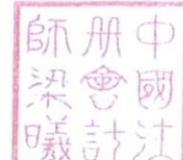 中國注
冊會計
師梁曦